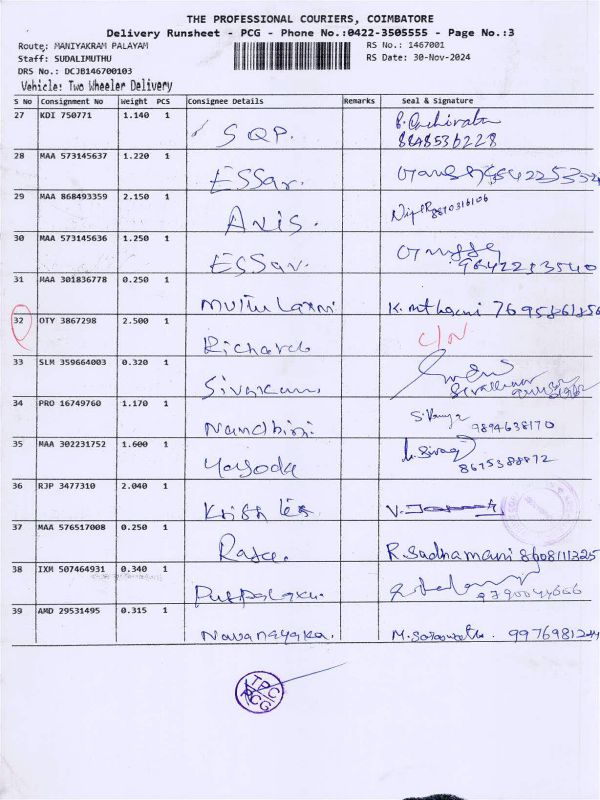 THE PROFESSIONAL COURIERS, COIMBATORE
Delivery Runsheet - PCG - Phone No.:0422-3505555 - Page No.:3
Route: MANIYAKRAM PALAYAM RS No.: 1467001
Staff: SUDALIMUTHU RS Date: 30-Nov-2024
DRS No.: DCJB146700103
Vehicle: Two Wheeler Delivery
S No Consignment No Weight PCS Consignee Details Remarks Seal & Signature
27 KDI 750771 1.140 1 SQP.
28 MAA 573145637 1.220 1 ESSar.
29 MAA 868493359 2.150 1 Axis. 8870316106
30 MAA 573145636 1.250 1 ESSar.
31 MAA 301836778 0.250 1 Muthu Laxmi
32 OTY 3867298 2.500 1 Richard C/N
33 SLM 359664003 0.320 1
34 PRO 16749760 1.170 1 Nandhini 9894638170
35 MAA 302231752 1.600 1 Yasoda 8675388872
36 RJP 3477310 2.040 1 V.
37 MAA 576517008 0.250 1 R. Sadhamani 8608111325
38 IXM 507464931 0.340 1 9790044666
39 AMD 29531495 0.315 1 Navanayaka.